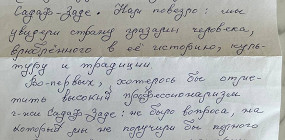 Садаф-Заде. Нам повезло: мы
увидели страну глазами человека,
влюблённого в её историю, куль-
туру и традиции.
Во-первых, хотелось бы отме-
тить высокий профессионализм
г-жи Садаф-Заде: не было вопроса, на
который мы не получили бы полного